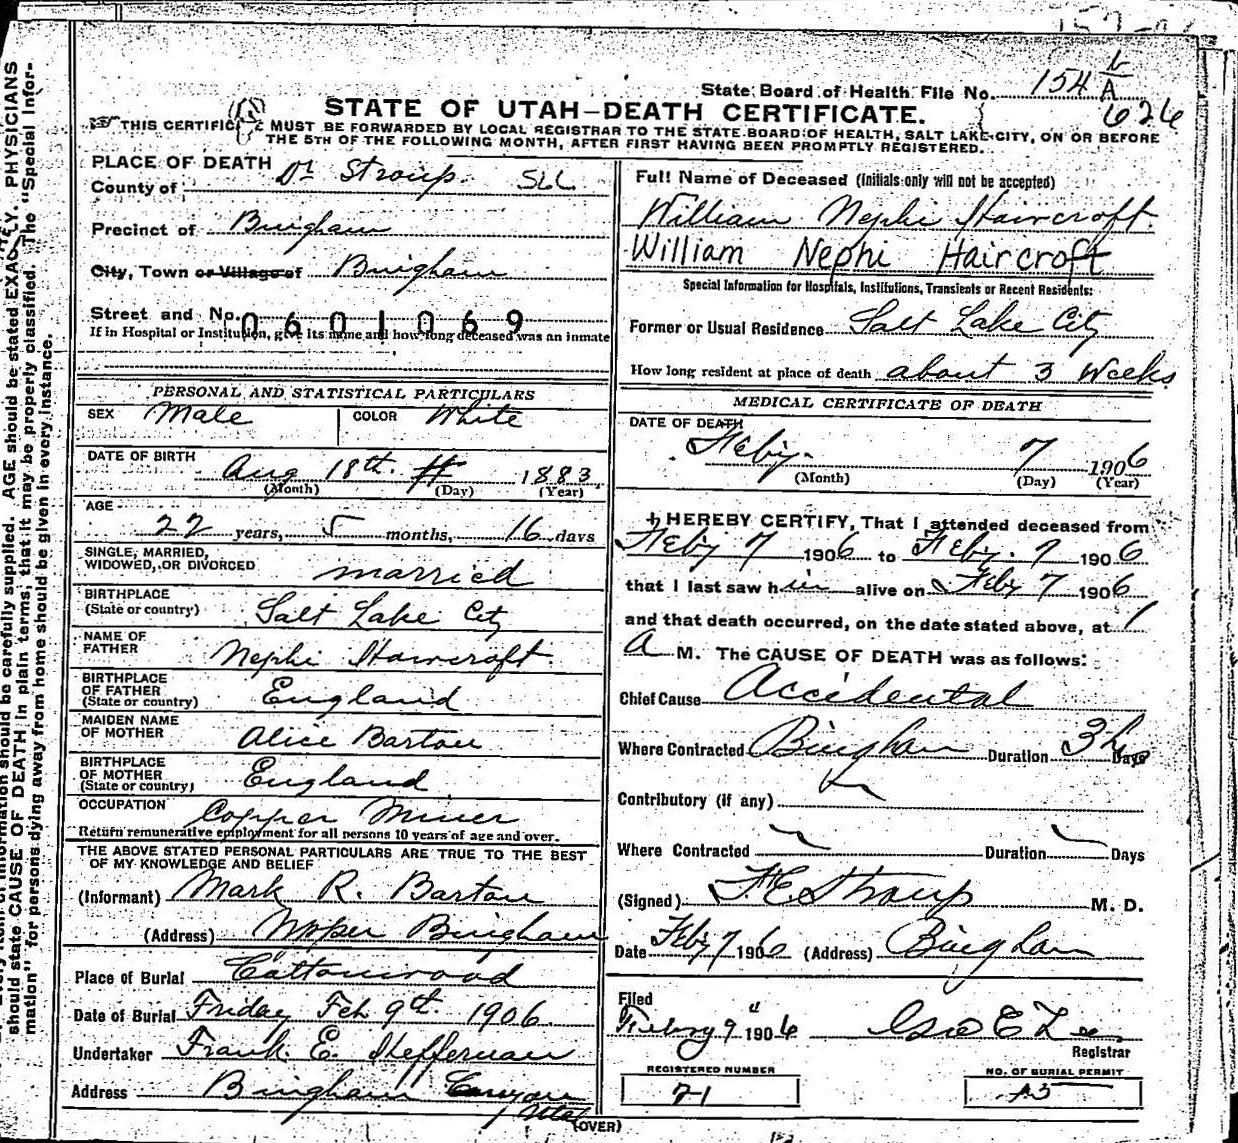 State Board of Health File No. 154 A
626
STATE OF UTAH—DEATH CERTIFICATE.
THIS CERTIFICATE MUST BE FORWARDED BY LOCAL REGISTRAR TO THE STATE BOARD OF HEALTH, SALT LAKE CITY, ON OR BEFORE
THE 5TH OF THE FOLLOWING MONTH, AFTER FIRST HAVING BEEN PROMPTLY REGISTERED.
PLACE OF DEATH Dr Stroup. SLC
County of
Precinct of Bingham
City, Town or Village of Bingham
Street and No.
0601069
If in Hospital or Institution, give its name and how long deceased was an inmate
PERSONAL AND STATISTICAL PARTICULARS
SEX Male COLOR White
DATE OF BIRTH Aug 18th. 1883
(Month) (Day) (Year)
AGE
22 years, 5 months, 16 days
SINGLE, MARRIED,
WIDOWED, OR DIVORCED married
BIRTHPLACE
(State or country) Salt Lake City
NAME OF
FATHER Nephi Haircroft
BIRTHPLACE
OF FATHER
(State or country) England
MAIDEN NAME
OF MOTHER Alice Barton
BIRTHPLACE
OF MOTHER
(State or country) England
OCCUPATION Copper Miner
Return remunerative employment for all persons 10 years of age and over.
THE ABOVE STATED PERSONAL PARTICULARS ARE TRUE TO THE BEST
OF MY KNOWLEDGE AND BELIEF
(Informant) Mark R. Barton
(Address) Upper Bingham
Place of Burial Cottonwood
Date of Burial Friday Feb 9th. 1906.
Undertaker Frank. E. Heffernan
Address Bingham Canyon
Utah
Full Name of Deceased (Initials only will not be accepted)
William Nephi Haircroft.
William Nephi Haircroft
Special Information for Hospitals, Institutions, Transients or Recent Residents:
Former or Usual Residence Salt Lake City
How long resident at place of death about 3 Weeks
MEDICAL CERTIFICATE OF DEATH
DATE OF DEATH
Feby. 7 1906
(Month) (Day) (Year)
I HEREBY CERTIFY, That I attended deceased from
Feby 7 1906 to Feby. 7 1906
that I last saw him alive on Feby 7 1906
and that death occurred, on the date stated above, at 1
A M. The CAUSE OF DEATH was as follows:
Chief Cause Accidental
Where Contracted Bingham Duration 3 hrs Days
Contributory (if any)
Where Contracted Duration Days
(Signed) F. E. Straup M. D.
Date Feby 7 1906 (Address) Bingham
Filed
Febry 9" 1906 Geo E Lee
Registrar
REGISTERED NUMBER
21
NO. OF BURIAL PERMIT
13
(OVER)
mation should be carefully supplied. AGE should be stated EXACTLY. PHYSICIANS
should state CAUSE OF DEATH in plain terms, that it may be properly classified. The "Special Infor-
mation" for persons dying away from home should be given in every instance.